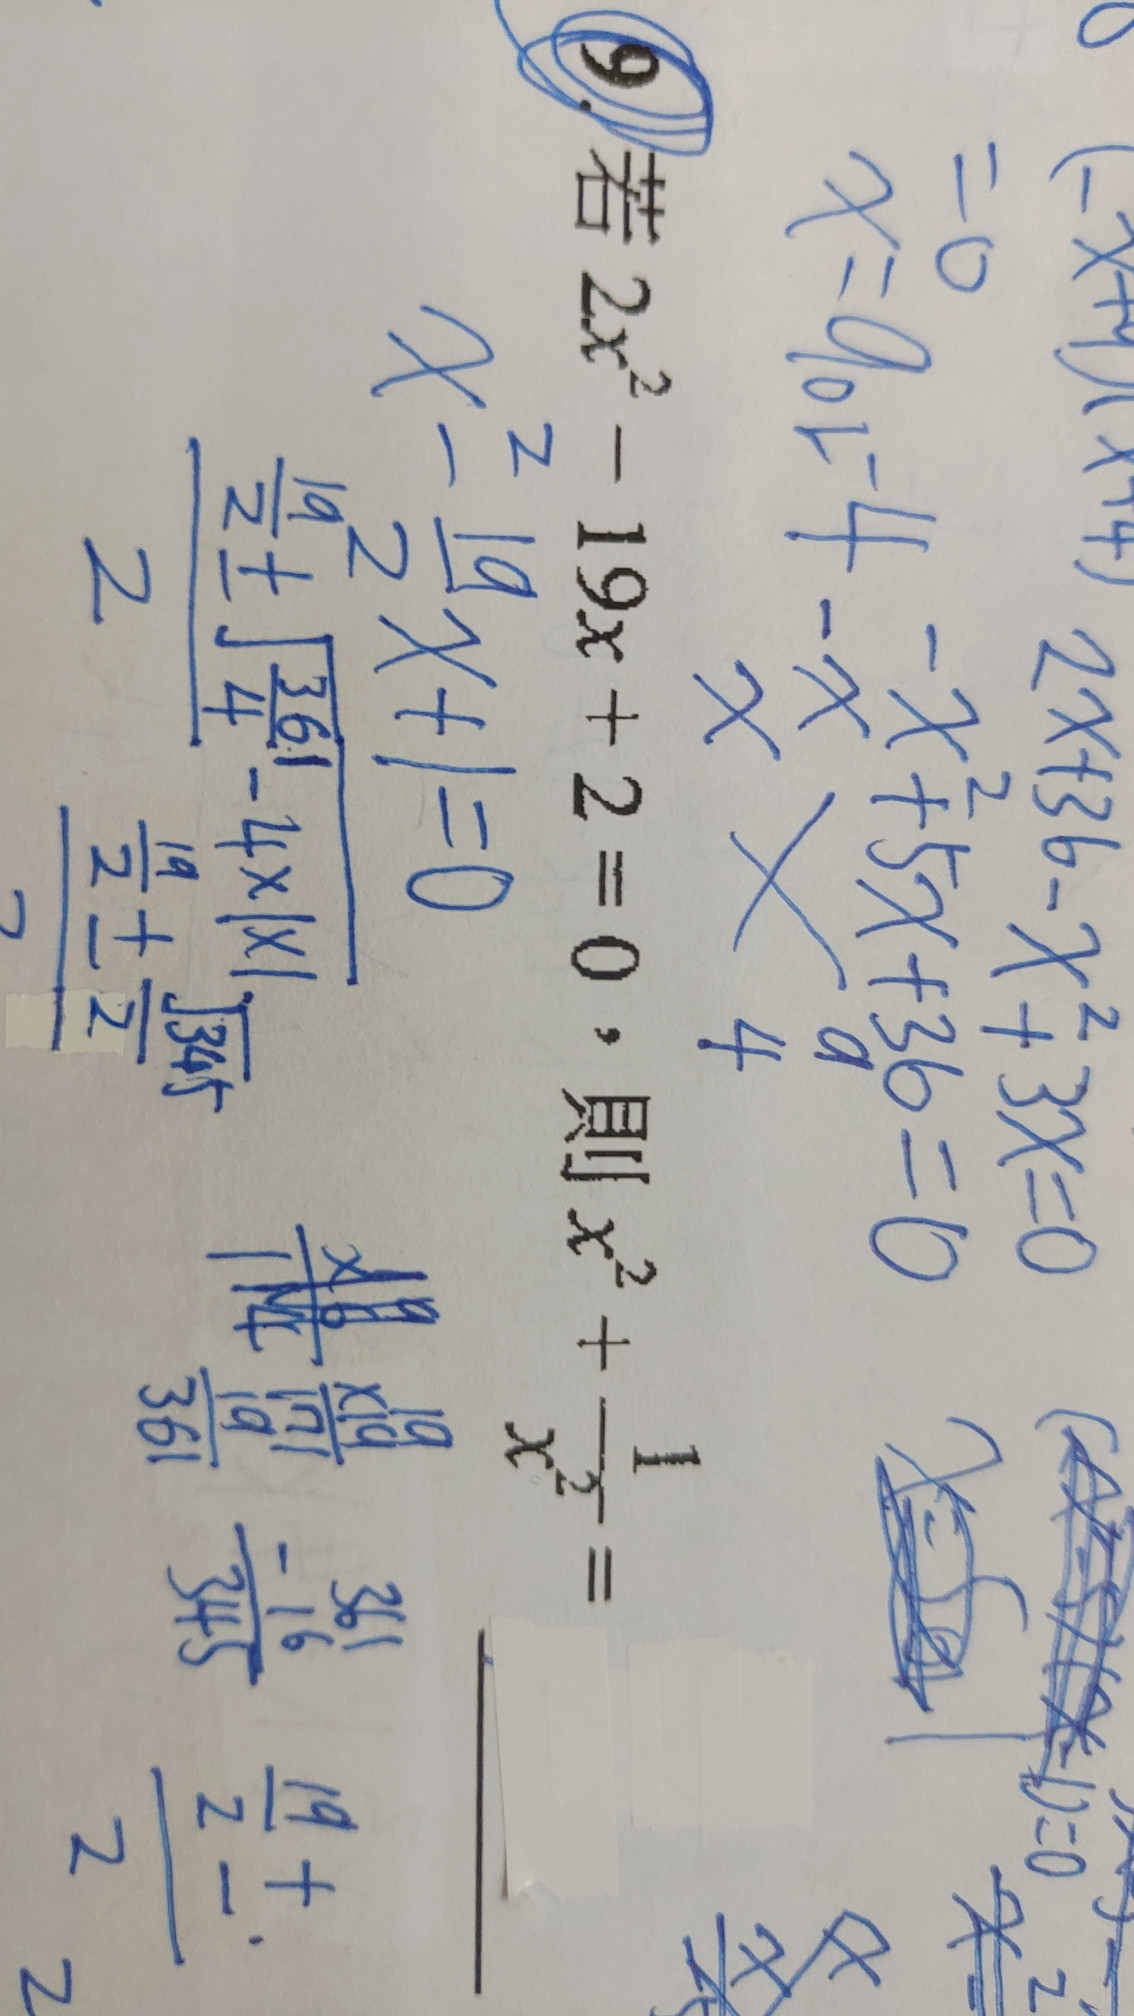 (-x+9)(x+4) 2x+36-x²+3x=0
=0 -x²+5x+36=0
x=9or-4 -x 9
x 4
9. 若 2x² − 19x + 2 = 0，則 x² + 1/x² =
x² - 19/2 x + 1 = 0
19/2 ± √(361/4 - 4x1x1)
2
19/2 ± √345/2
2
19
x19
171
19
361
361
-16
345
19/2 ±
2